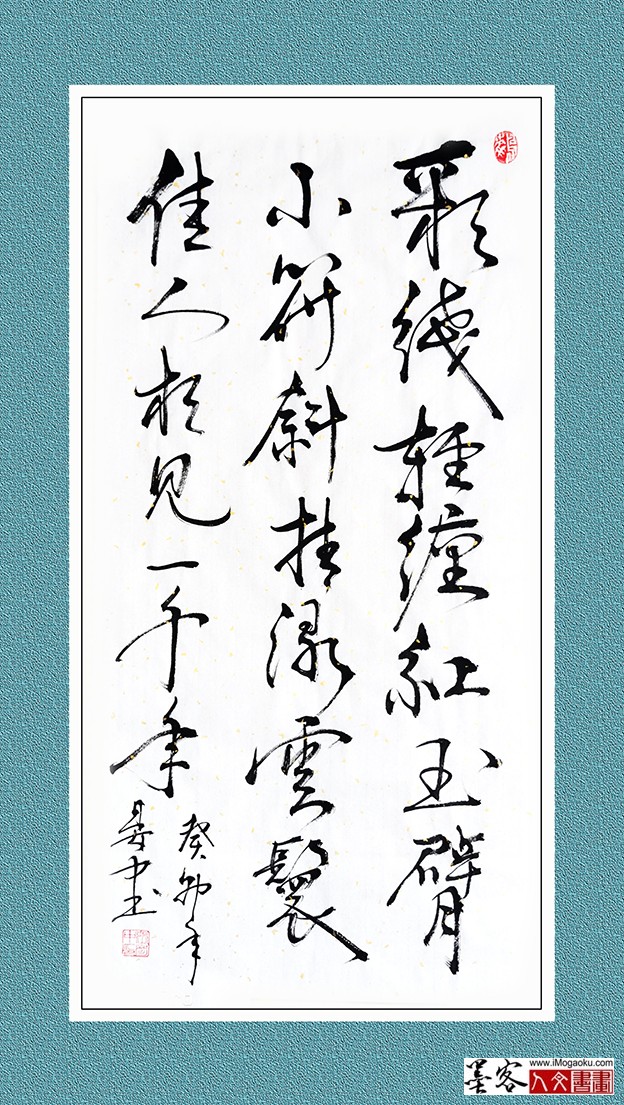 彩线轻缠红玉臂
小符斜挂绿雲鬟
佳人相见一千年
癸卯年
晏中书
墨客
www.iMogaoku.com
人文書畫